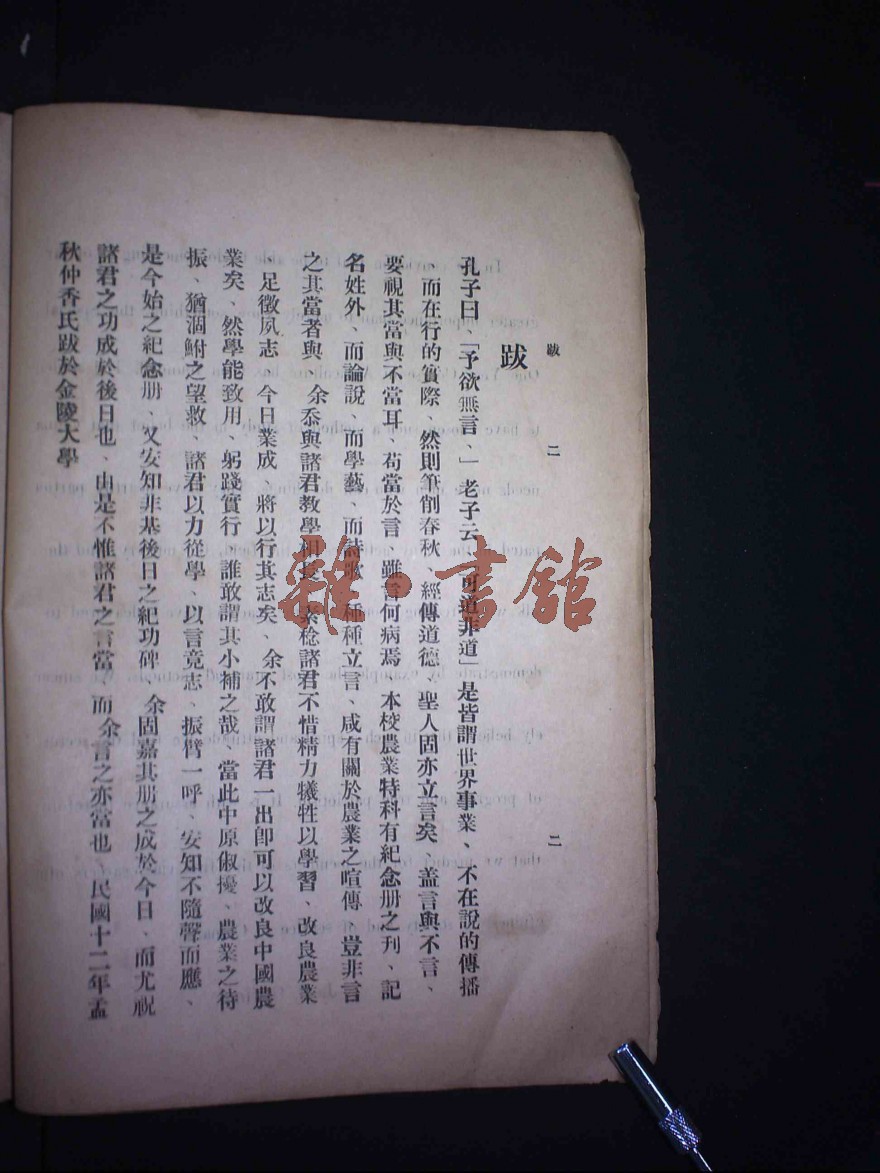 跋
二
二
跋
孔子曰、「予欲無言、」老子云、「可道非道」是皆謂世界事業、不在說的傳播
、而在行的實際、然則筆削春秋、經傳道德、聖人固亦立言矣、盖言與不言、
要視其當與不當耳、苟當於言、雖言何病焉、本校農業特科有紀念册之刊、記
名姓外、而論說、而學藝、而詩歌、種種立言、咸有關於農業之喧傳、豈非言
之其當者與、余忝與諸君教學相長、素稔諸君不惜精力犧牲以學習、改良農業
、足徵夙志、今日業成、將以行其志矣、余不敢謂諸君一出卽可以改良中國農
業矣、然學能致用、躬踐實行、誰敢謂其小補之哉、當此中原俶擾、農業之待
振、猶涸鮒之望救、諸君以力從學、以言竟志、振臂一呼、安知不隨聲而應、
是今始之紀念册、又安知非基後日之紀功碑、余固嘉其册之成於今日、而尤祝
諸君之功成於後日也、由是不惟諸君之言當、而余言之亦當也、民國十二年孟
秋仲香氏跋於金陵大學
雜·書館